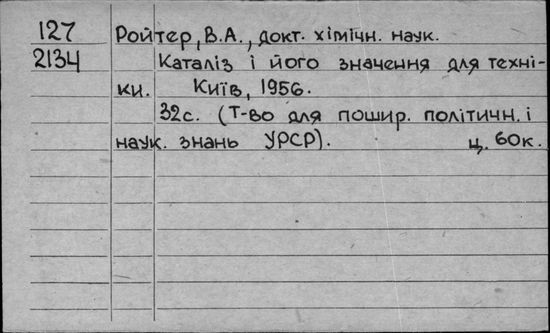 127 Ройтер, В.А., докт. хімічн. наук.
2134 Каталіз і його значення для техні-
ки. Київ, 1956.
32с. (Т-во для пошир. політичн. і
наук. знань УРСР). ц. 60к.